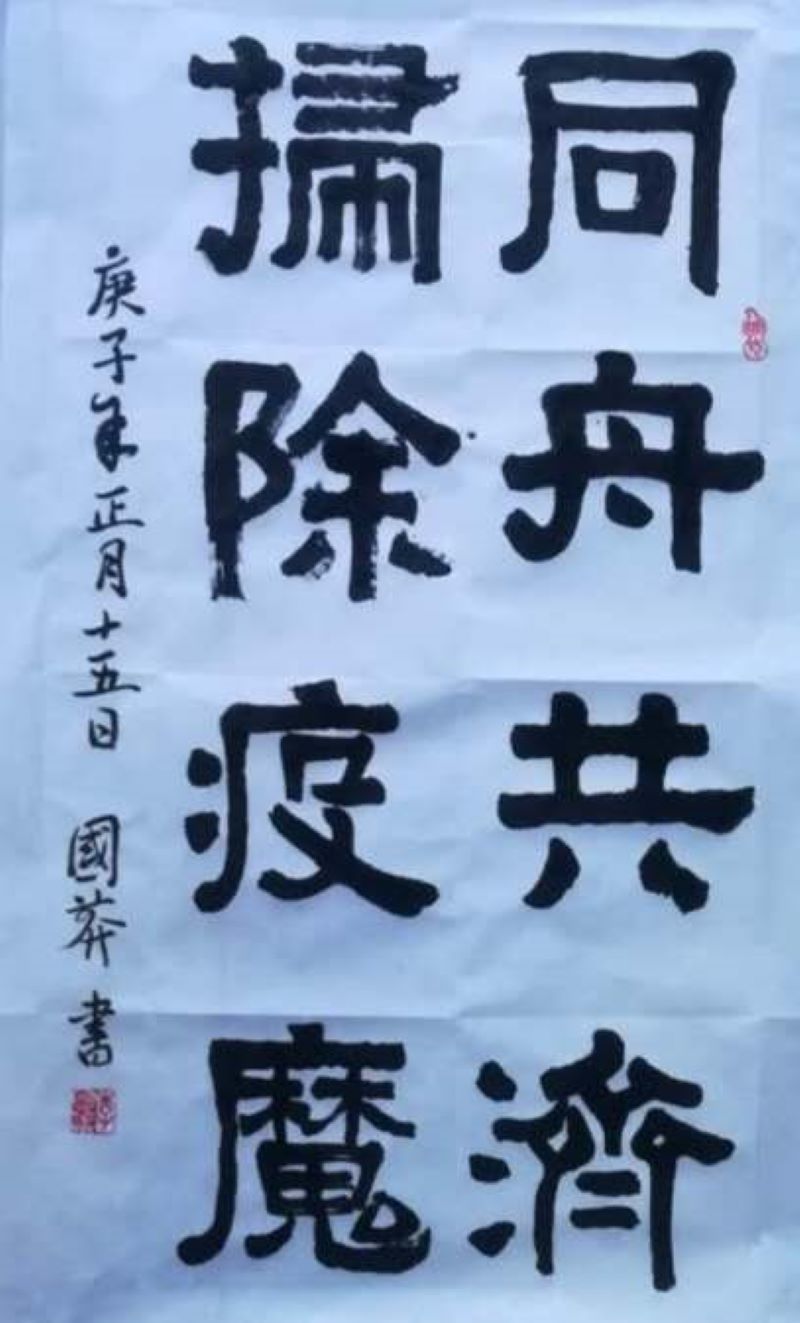 同舟共濟
掃除疫魔
庚子年正月十五日 國莽書